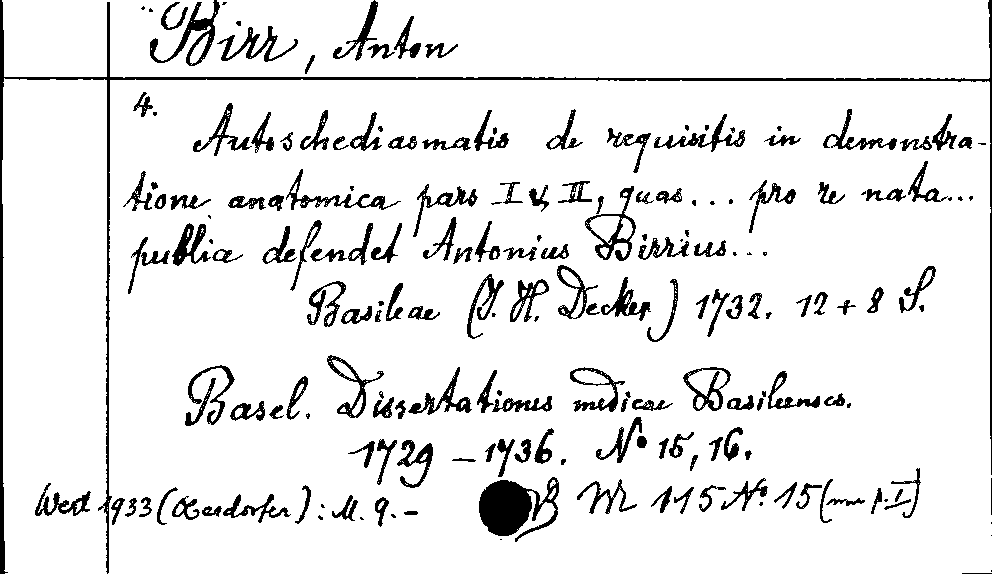 Birr, Anton
4.
Autoschediasmatis de requisitis in demonstra-
tione anatomica pars I & II, quas... pro re nata...
publice defendet Antonius Birrius...
Basileae (J. H. Decker) 1732. 12 + 8 S.
Basel. Dissertationes medicae Basileenses.
1729 – 1736. No 15, 16.
Wert 1933 (Oesdorfer): M. 9.–
B M 115 No. 15 (nur p. I)